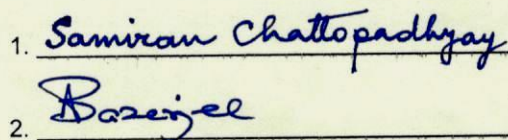 1. Samiran Chattopadhyay
2. ABanerjee